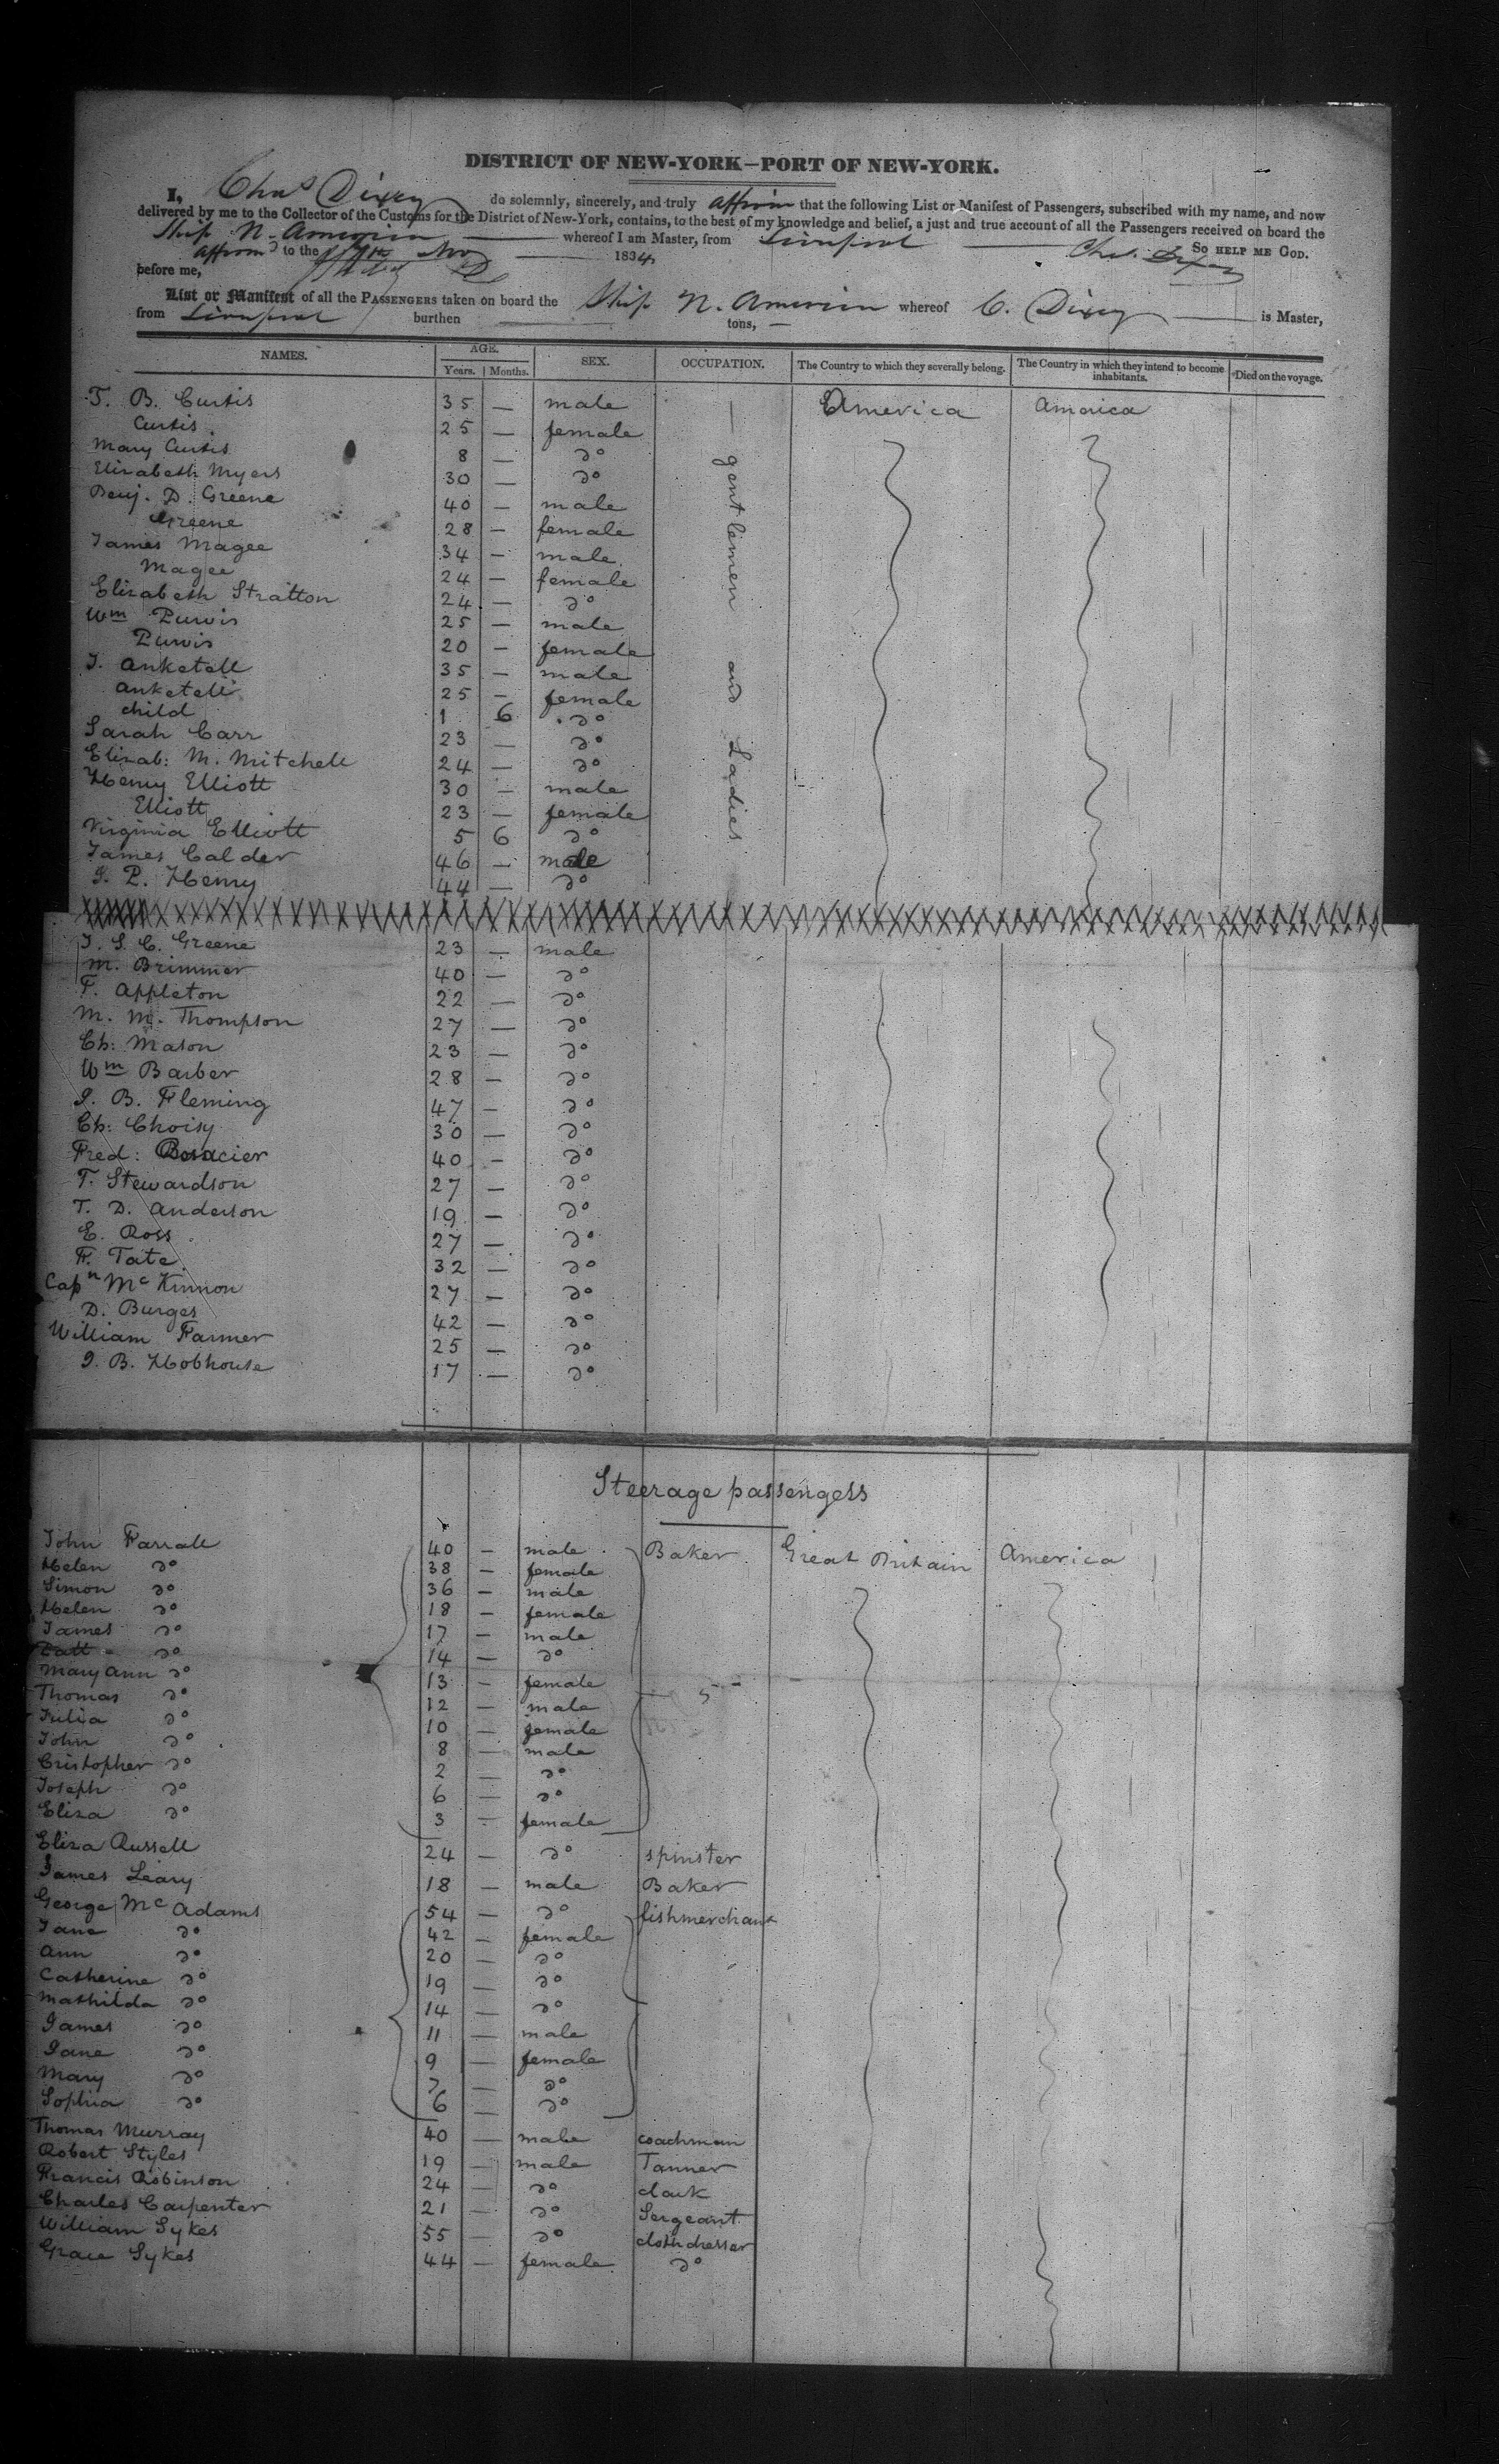 DISTRICT OF NEW-YORK—PORT OF NEW-YORK.
I, Chas Dixey do solemnly, sincerely, and truly affirm that the following List or Manifest of Passengers, subscribed with my name, and now
delivered by me to the Collector of the Customs for the District of New-York, contains, to the best of my knowledge and belief, a just and true account of all the Passengers received on board the
Ship N. America whereof I am Master, from Liverpool
So HELP ME GOD.
affirmd to the Nov 1834
Chs. Dixey
before me,
List or Manifest of all the PASSENGERS taken on board the Ship N. America whereof C. Dixey is Master,
from Liverpool burthen tons,
NAMES. AGE. Years. Months. SEX. OCCUPATION. The Country to which they severally belong. The Country in which they intend to become inhabitants. Died on the voyage.
T. B. Curtis 35 — male — America America
Curtis 25 — female
Mary Curtis 8 — do
Elizabeth Myers 30 — do
Benj. D. Greene 40 — male
Greene 28 — female
James Magee 34 — male
Magee 24 — female
Elizabeth Stratton 24 — do
Wm Purvis 25 — male
Purvis 20 — female
J. Anketell 35 — male
Anketell 25 — female
child 1 6 do
Sarah Carr 23 — do
Elizab: M. Mitchell 24 — do
Henry Elliott 30 — male
Elliott 23 — female
Virginia Elliott 5 6 do
James Calder 46 — male
J. P. Henry 44 — do
gentlemen and Ladies
J. S. C. Greene 23 — male
M. Brimmer 40 — do
F. Appleton 22 — do
M. M. Thompson 27 — do
Ch: Mason 23 — do
Wm Barber 28 — do
J. B. Fleming 47 — do
Ch: Choisy 30 — do
Fred: 40 — do
T. Stewardson 27 — do
T. D. Anderson 19 — do
E. Ross 27 — do
F. Tate 32 — do
Capn McKinnon 27 — do
D. Burges 42 — do
William Farmer 25 — do
J. B. Hobhouse 17 — do
Steerage passengers
John Farrall 40 — male Baker Great Britain America
Helen do 38 — female
Simon do 36 — male
Helen do 18 — female
James do 17 — male
Patt do 14 — do
Mary Ann do 13 — female
Thomas do 12 — male
Julia do 10 — female
John do 8 — male
Cristopher do 2 — do
Joseph do 6 — do
Eliza do 3 — female
Eliza Russell 24 — do spinster
James Leary 18 — male Baker
George McAdams 54 — do fishmerchant
Jane do 42 — female
Ann do 20 — do
Catherine do 19 — do
Mathilda do 14 — do
James do 11 — male
Jane do 9 — female
Mary do 7 — do
Sophia do 6 — do
Thomas Murray 40 — male coachman
Robert Styles 19 — male Tanner
Francis Robinson 24 — do clark
Charles Carpenter 21 — do Sergeant
William Sykes 55 — do clothdresser
Grace Sykes 44 — female do